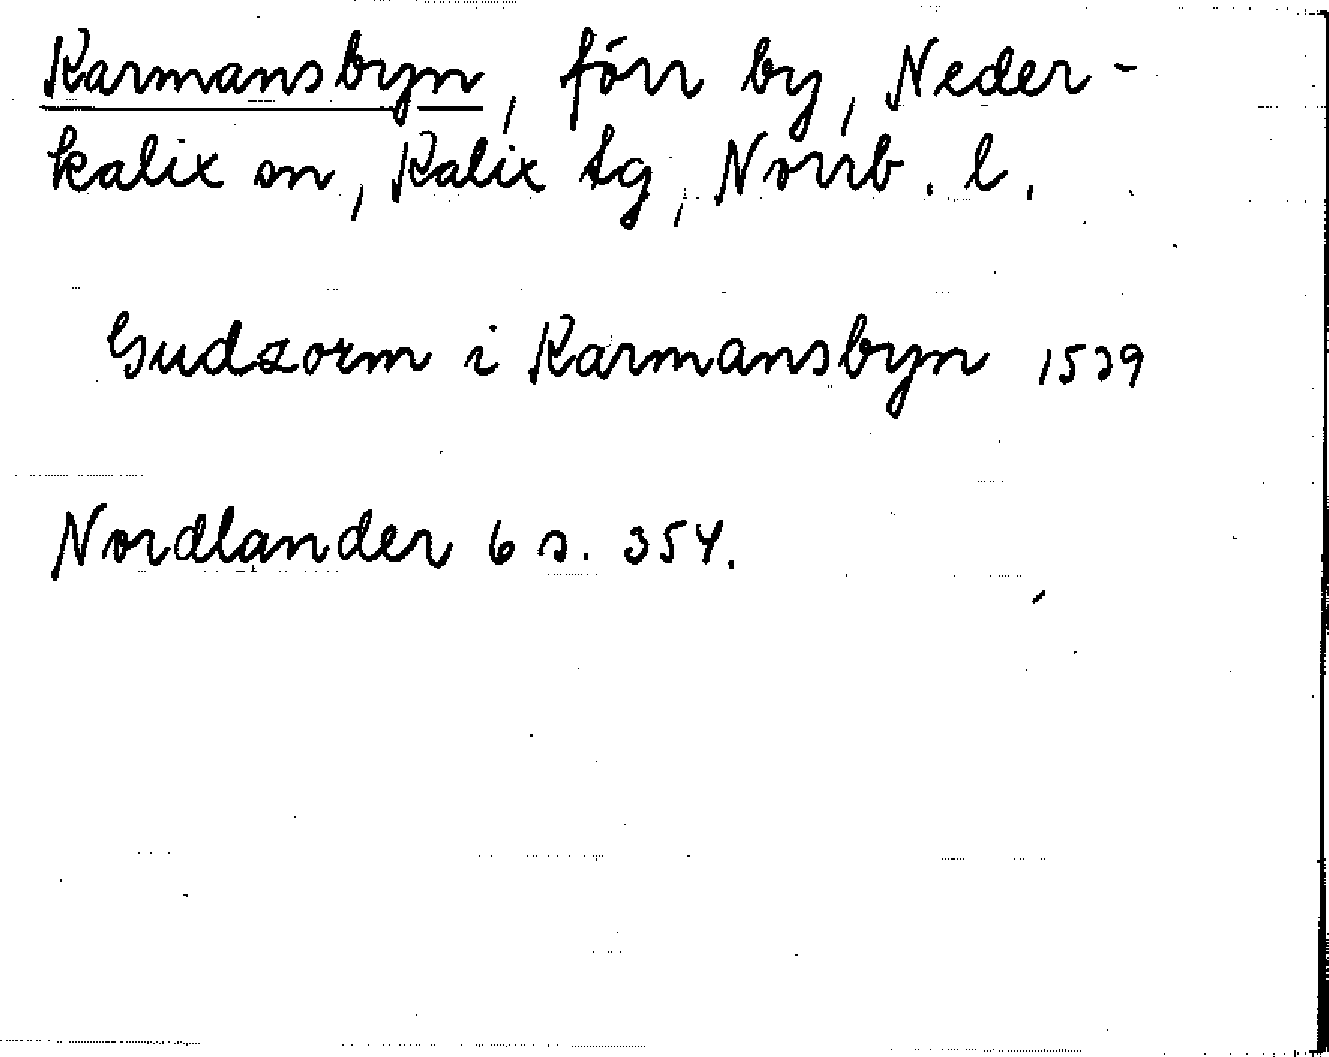 Karmansbyn, förr by, Neder-
kalix sn, Kalix tg, Norrb. l.
Gudzorm i Karmansbyn 1539
Nordlander 6 s. 354.